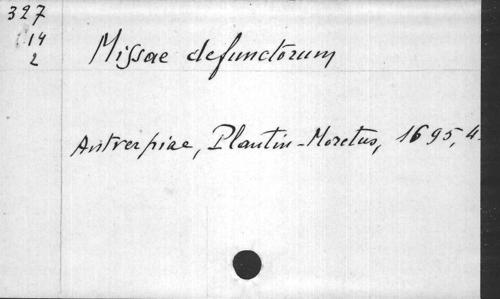 327
14
2
Missae defunctorum
Antverpiae, Plantin-Moretus, 1695, 4